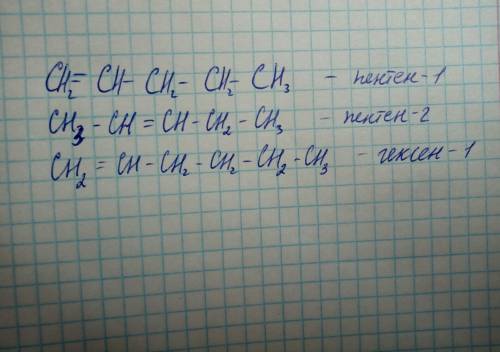 CH₂= CH- CH₂- CH₂- CH₃ - пентен-1
CH₃ - CH = CH - CH₂ - CH₃ - пентен-2
CH₂ = CH - CH₂ - CH₂ - CH₂ - CH₃ - гексен-1